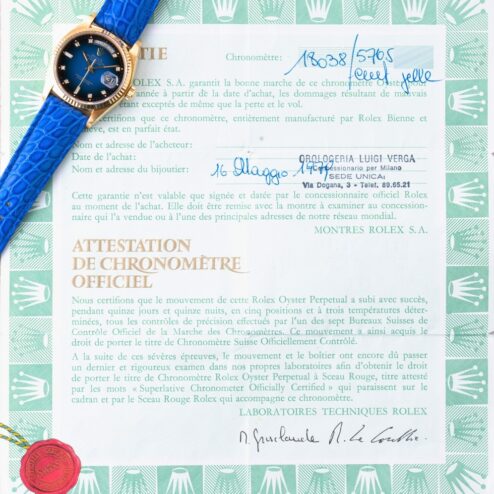 TIE
Chronomètre: 18038/5705
cuir pelle
ROLEX S.A. garantit la bonne marche de ce chronomètre Oyster
année à partir de la date d'achat, les dommages résultant de mauvais
exceptés de même que la perte et le vol.
certifions que ce chronomètre, entièrement manufacturé par Rolex Bienne et
est en parfait état.
Nom et adresse de l'acheteur:
Date de l'achat:
Nom et adresse du bijoutier:
16 Maggio
OROLOGERIA LUIGI VERGA
Concessionario per Milano
SEDE UNICA:
Via Dogana, 3 - Telef. 89.65.21
Cette garantie n'est valable que signée et datée par le concessionnaire officiel Rolex
au moment de l'achat. Elle doit être remise avec la montre à examiner au concession-
naire qui l'a vendue ou à l'une des principales adresses de notre réseau mondial.
MONTRES ROLEX S.A.
ATTESTATION
DE CHRONOMÈTRE
OFFICIEL
Nous certifions que le mouvement de cette Rolex Oyster Perpetual a subi avec succès,
pendant quinze jours et quinze nuits, en cinq positions et à trois températures déter-
minées, tous les contrôles de précision effectués par l'un des sept Bureaux Suisses de
Contrôle Officiel de la Marche des Chronomètres. Ce mouvement a ainsi acquis le
droit de porter le titre de Chronomètre Suisse Officiellement Contrôlé.
A la suite de ces sévères épreuves, le mouvement et le boîtier ont encore dû passer
un dernier et rigoureux examen dans nos propres laboratoires afin d'obtenir le droit
de porter le titre de Chronomètre Rolex Oyster Perpetual à Sceau Rouge, titre attesté
par les mots «Superlative Chronometer Officially Certified» qui paraissent sur le
cadran et par le Sceau Rouge Rolex qui accompagne ce chronomètre.
LABORATOIRES TECHNIQUES ROLEX